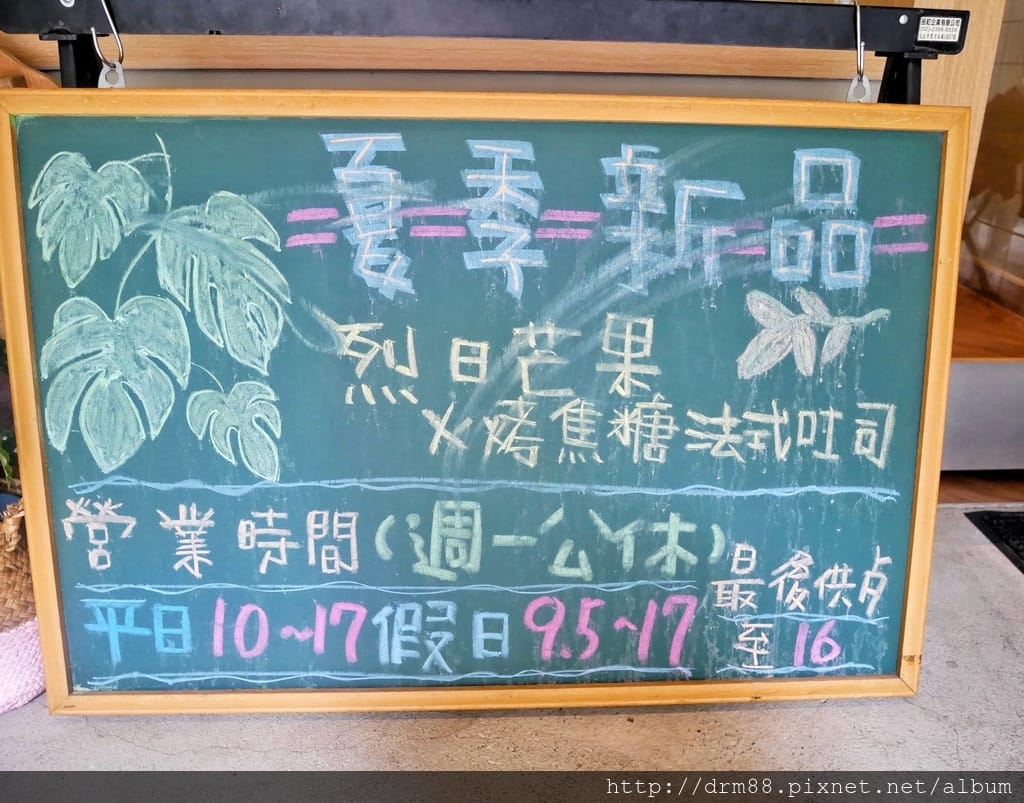 夏季新品
烈日芒果
火烤焦糖法式吐司
營業時間(週一公休)
平日10~17假日9.5~17
最後供点
至16
http://drm88.pixnet.net/album